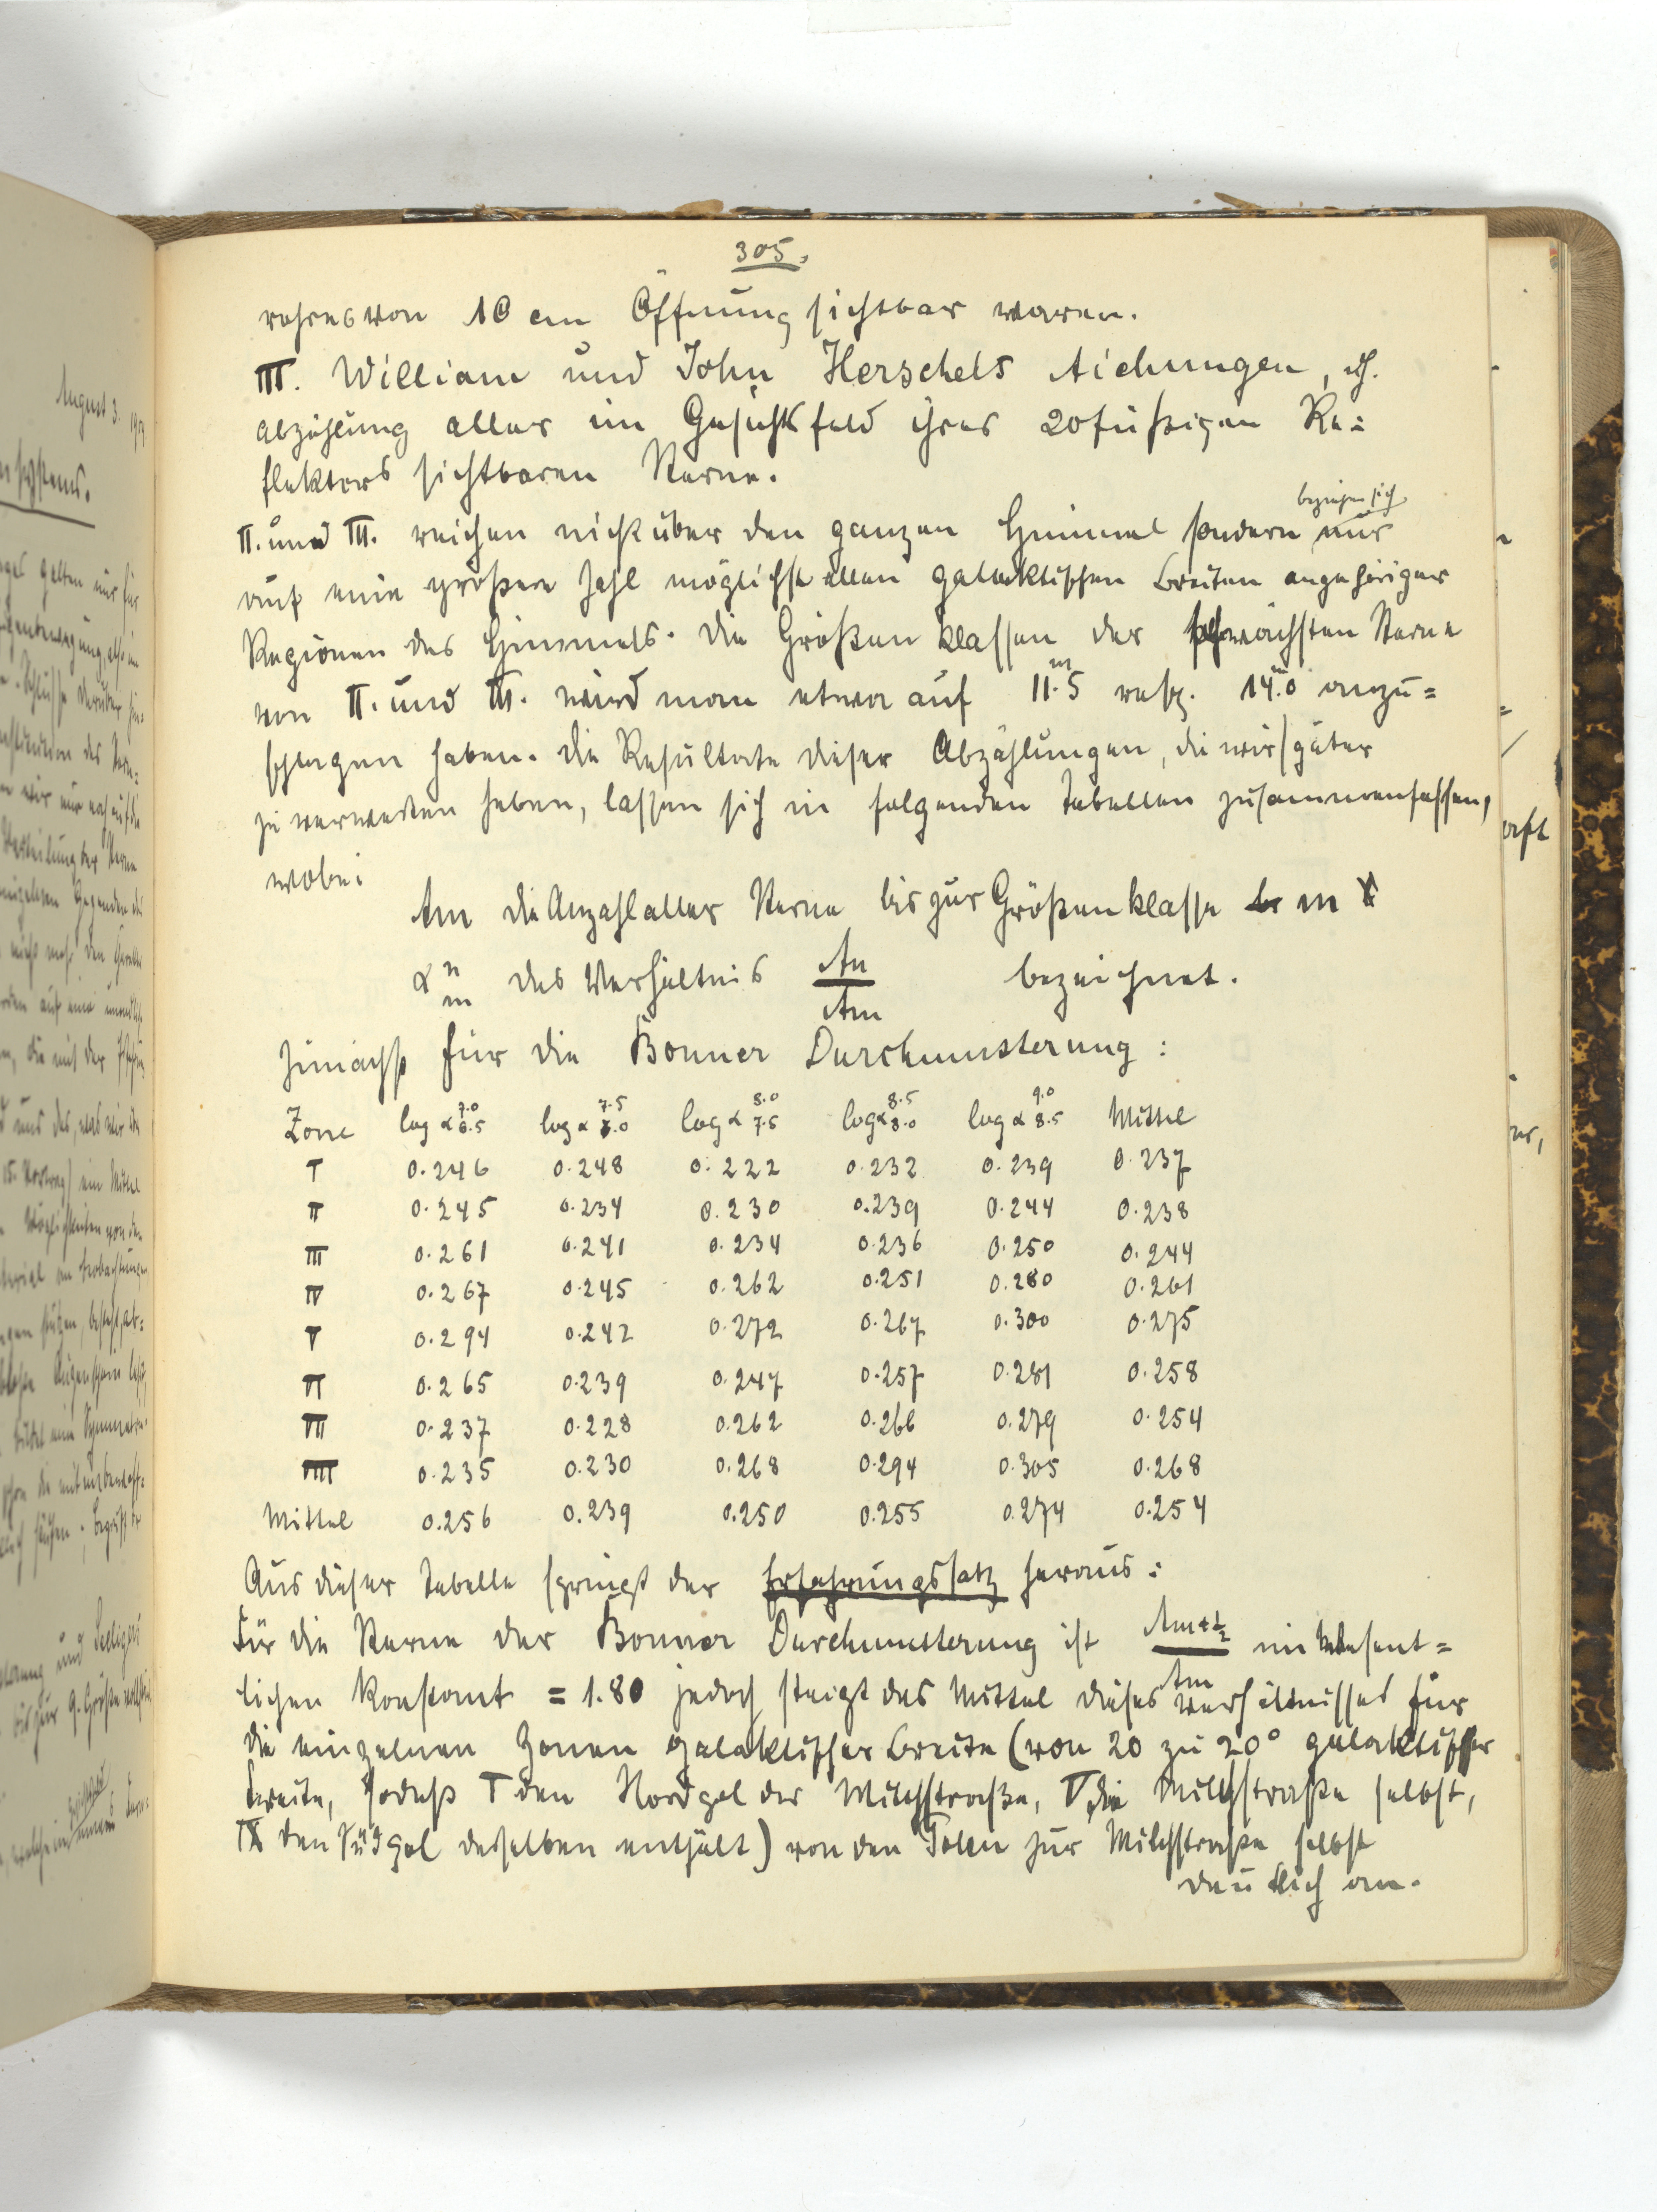 305.
rohres von 10 cm Öffnung sichtbar waren.
III. William und John Herschels Aichungen, dh.
Abzählung aller im Gesichtsfeld ihres 20füßigen Re=
flektors sichtbaren Sterne.
beziehen sich
II. und III. reichen nicht über den ganzen Himmel sondern nur
auf eine größere Zahl möglichst allen galaktischen Breiten angehöriger
Regionen des Himmels. Die Größenklassen der schwächsten Sterne
von II. und III. wird man etwa auf 11.5ᵐ resp. 14.0ᵐ anzu=
schlagen haben. Die Resultate dieser Abzählungen, die wir später
zu verwerten haben, lassen sich in folgenden Tabellen zusammenfassen,
wobei
Am die Anzahl aller Sterne bis zur Größenklasse m
α n m das Verhältnis An / Am bezeichnet.
Zunächst für die Bonner Durchmusterung:
Zone log α 7.0 6.5 log α 7.5 7.0 log α 8.0 7.5 log α 8.5 8.0 log α 9.0 8.5 Mittel
I 0.246 0.248 0.222 0.232 0.239 0.237
II 0.245 0.234 0.230 0.239 0.244 0.238
III 0.261 0.241 0.234 0.236 0.250 0.244
IV 0.267 0.245 0.262 0.251 0.280 0.261
V 0.294 0.242 0.272 0.267 0.300 0.275
VI 0.265 0.239 0.247 0.257 0.281 0.258
VII 0.237 0.228 0.262 0.266 0.279 0.254
VIII 0.235 0.230 0.268 0.294 0.305 0.268
Mittel 0.256 0.239 0.250 0.255 0.274 0.254
Aus dieser Tabelle springt der Erfahrungssatz heraus:
Für die Sterne der Bonner Durchmusterung ist Am+½ / Am im wesent=
lichen konstant = 1.80 jedoch steigt das Mittel dieses Verhältnisses für
die einzelnen Zonen galaktischer Breite (von 20 zu 20° galaktischer
Breite, sodaß I den Nordpol der Milchstraße, V die Milchstraße selbst,
IX den Südpol derselben enthält) von den Polen zur Milchstraße selbst
deutlich an.